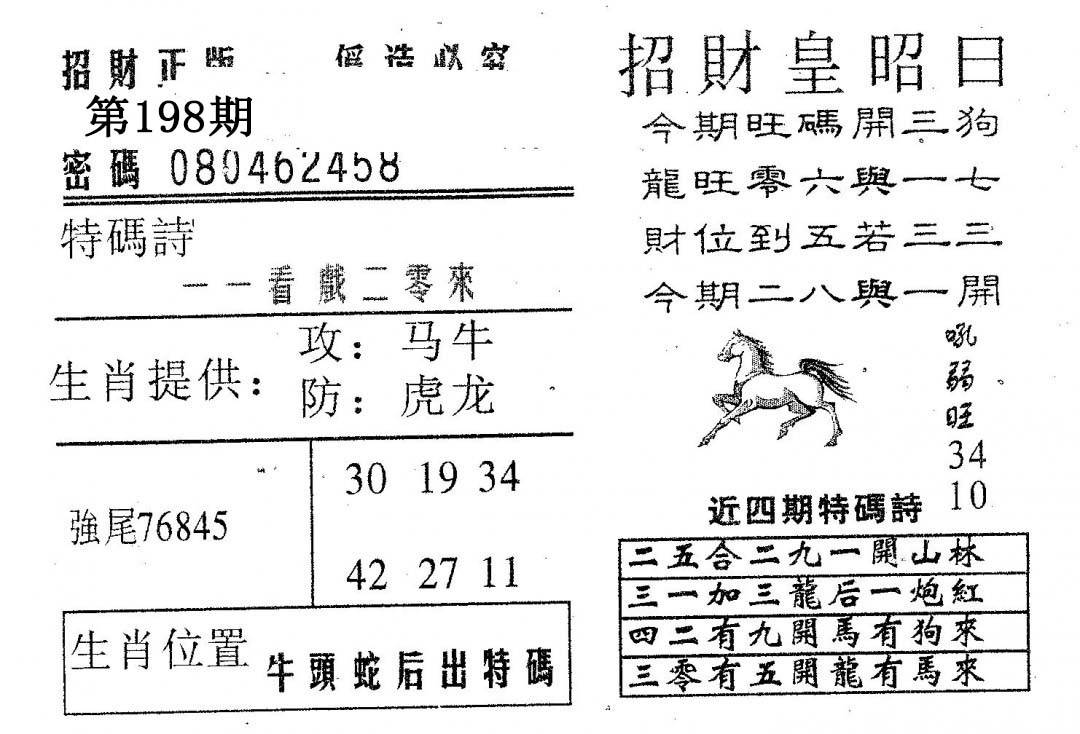 招財正版 偽造必究
第198期
密碼 080462458
特碼詩
一一看戲二零來
生肖提供:
攻: 马牛
防: 虎龙
強尾76845
30 19 34
42 27 11
生肖位置 牛頭蛇后出特碼
招財皇昭曰
今期旺碼開三狗
龍旺零六與一七
財位到五若三三
今期二八與一開
吼
弱
旺
34
10
近四期特碼詩
二五合二九一開山林
三一加三龍后一炮紅
四二有九開馬有狗來
三零有五開龍有馬來